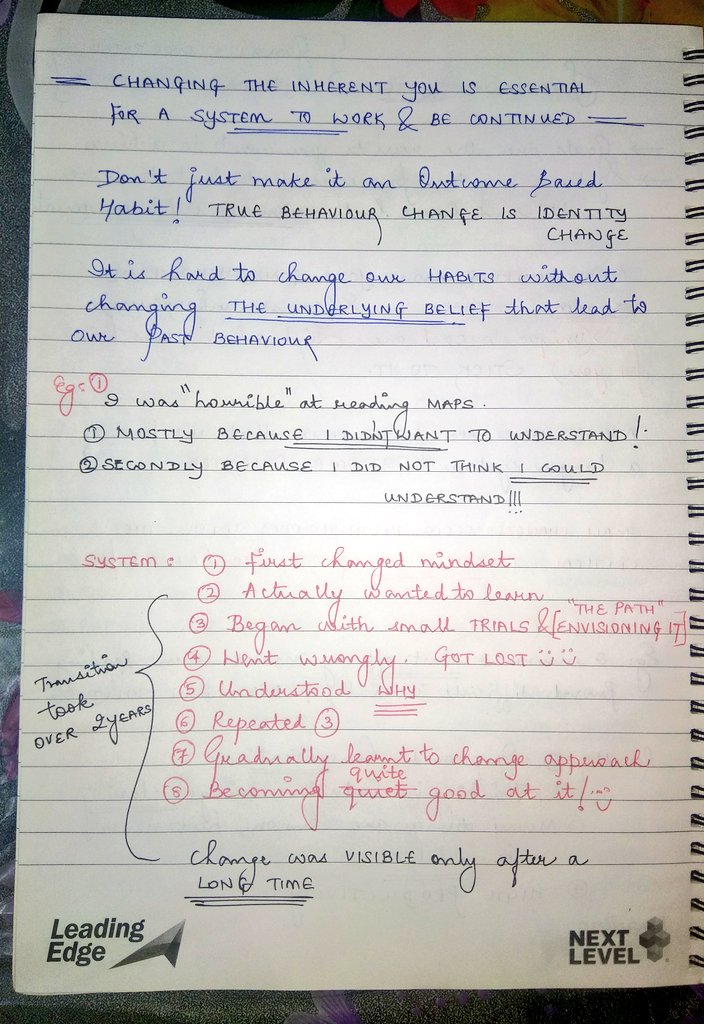 = CHANGING THE INHERENT YOU IS ESSENTIAL
FOR A SYSTEM TO WORK & BE CONTINUED =
Don't just make it an Outcome Based
Habit! TRUE BEHAVIOUR CHANGE IS IDENTITY
CHANGE
It is hard to change our HABITS without
changing THE UNDERLYING BELIEF that lead to
our PAST BEHAVIOUR
Eg: ①
I was "hourible" at reading MAPS.
① MOSTLY BECAUSE I DIDN'T WANT TO UNDERSTAND!
② SECONDLY BECAUSE I DID NOT THINK I COULD
UNDERSTAND!!!
SYSTEM: ① First changed mindset
② Actually wanted to learn
"THE PATH"
③ Began with small TRIALS & [ENVISIONING IT]
④ Went wrongly. GOT LOST
⑤ Understood WHY
⑥ Repeated ③
⑦ Gradually learnt to change approach
quite
⑧ Becoming quiet good at it!
Transition
took
OVER 2 YEARS
Change was VISIBLE only after a
LONG TIME
Leading
Edge
NEXT
LEVEL